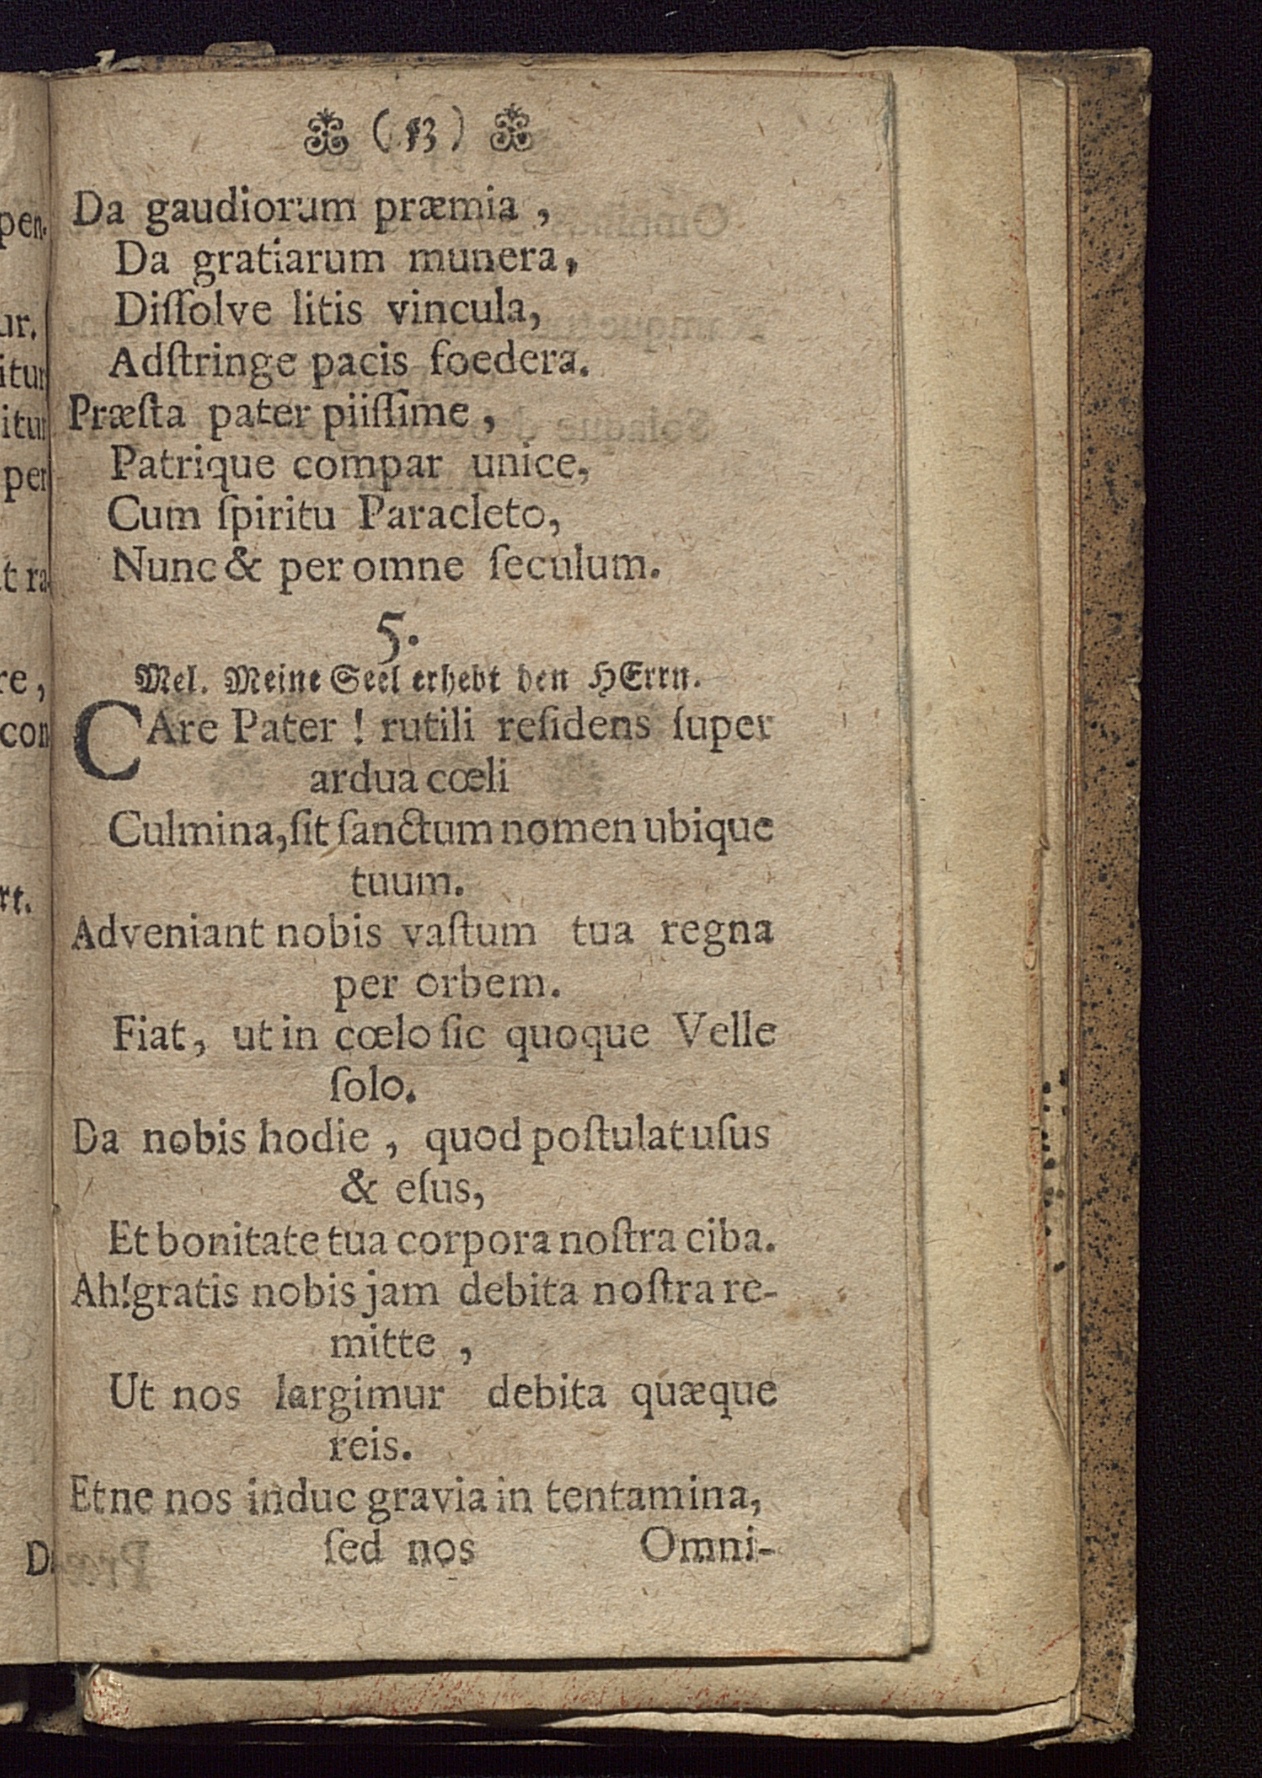 (13)
Da gaudiorum præmia,
Da gratiarum munera,
Diſſolve litis vincula,
Adſtringe pacis foedera.
Præſta pater piiſſime,
Patrique compar unice,
Cum ſpiritu Paracleto,
Nunc & per omne ſeculum.
5.
Mel. Meine Seel erhebt den HErrn.
CAre Pater ! rutili reſidens ſuper
ardua cœli
Culmina, ſit ſanctum nomen ubique
tuum.
Adveniant nobis vaſtum tua regna
per orbem.
Fiat, ut in cœlo ſic quoque Velle
ſolo.
Da nobis hodie, quod poſtulat uſus
& eſus,
Et bonitate tua corpora noſtra ciba.
Ah! gratis nobis jam debita noſtra re-
mitte,
Ut nos largimur debita quæque
reis.
Et ne nos induc gravia in tentamina,
ſed nos
Omni-